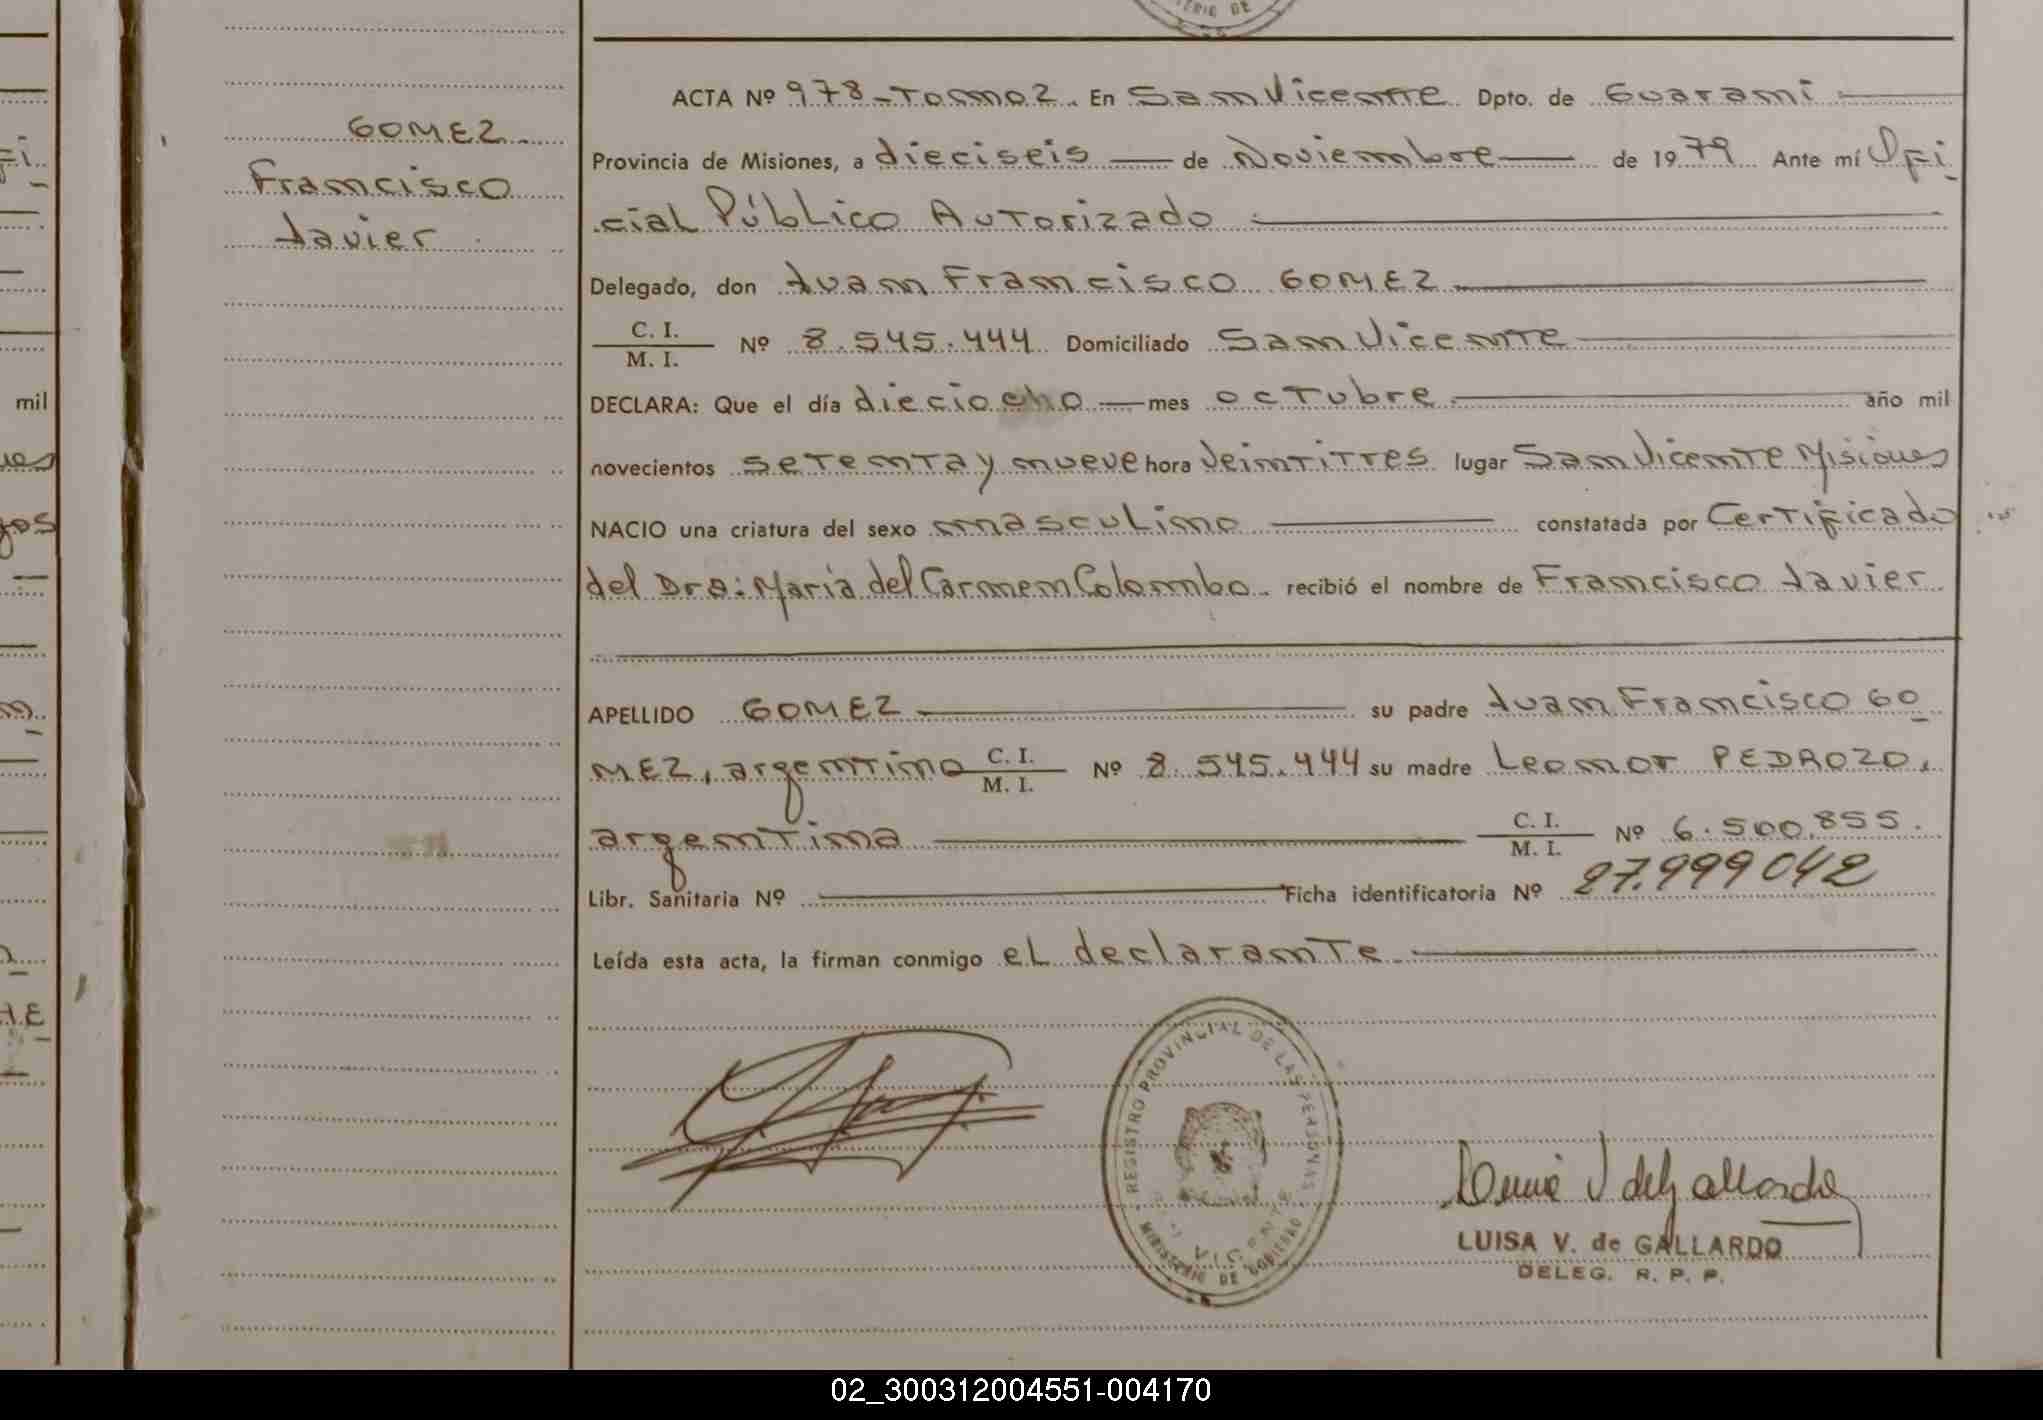 TERIO DE
ACTA Nº 978-Tomo 2. En San Vicente Dpto. de Guarani
GOMEZ
Francisco
Javier
Provincia de Misiones, a dieciseis de Noviembre de 1979 Ante mí Ofi
cial Público Autorizado
Delegado, don Juan Francisco GOMEZ
C. I.
M. I. Nº 8.545.444 Domiciliado San Vicente
DECLARA: Que el día dieciocho mes octubre año mil
novecientos setenta y nueve hora Veintitres lugar San Vicente Misiones
NACIO una criatura del sexo masculino constatada por Certificado
del Dra: María del Carmen Colombo. recibió el nombre de Francisco Javier
APELLIDO GOMEZ su padre Juan Francisco GO
MEZ, argentino C. I. M. I. Nº 8.545.444 su madre Leonor PEDROZO,
argentina C. I. M. I. Nº 6.500.855.
Libr. Sanitaria Nº Ficha identificatoria Nº 27.999042
Leída esta acta, la firman conmigo el declarante
REGISTRO PROVINCIAL DE LAS PERSONAS
MINISTERIO DE GOBIERNO
LUISA V. de GALLARDO
DELEG. R. P. P.
mil
gos
02_300312004551-004170